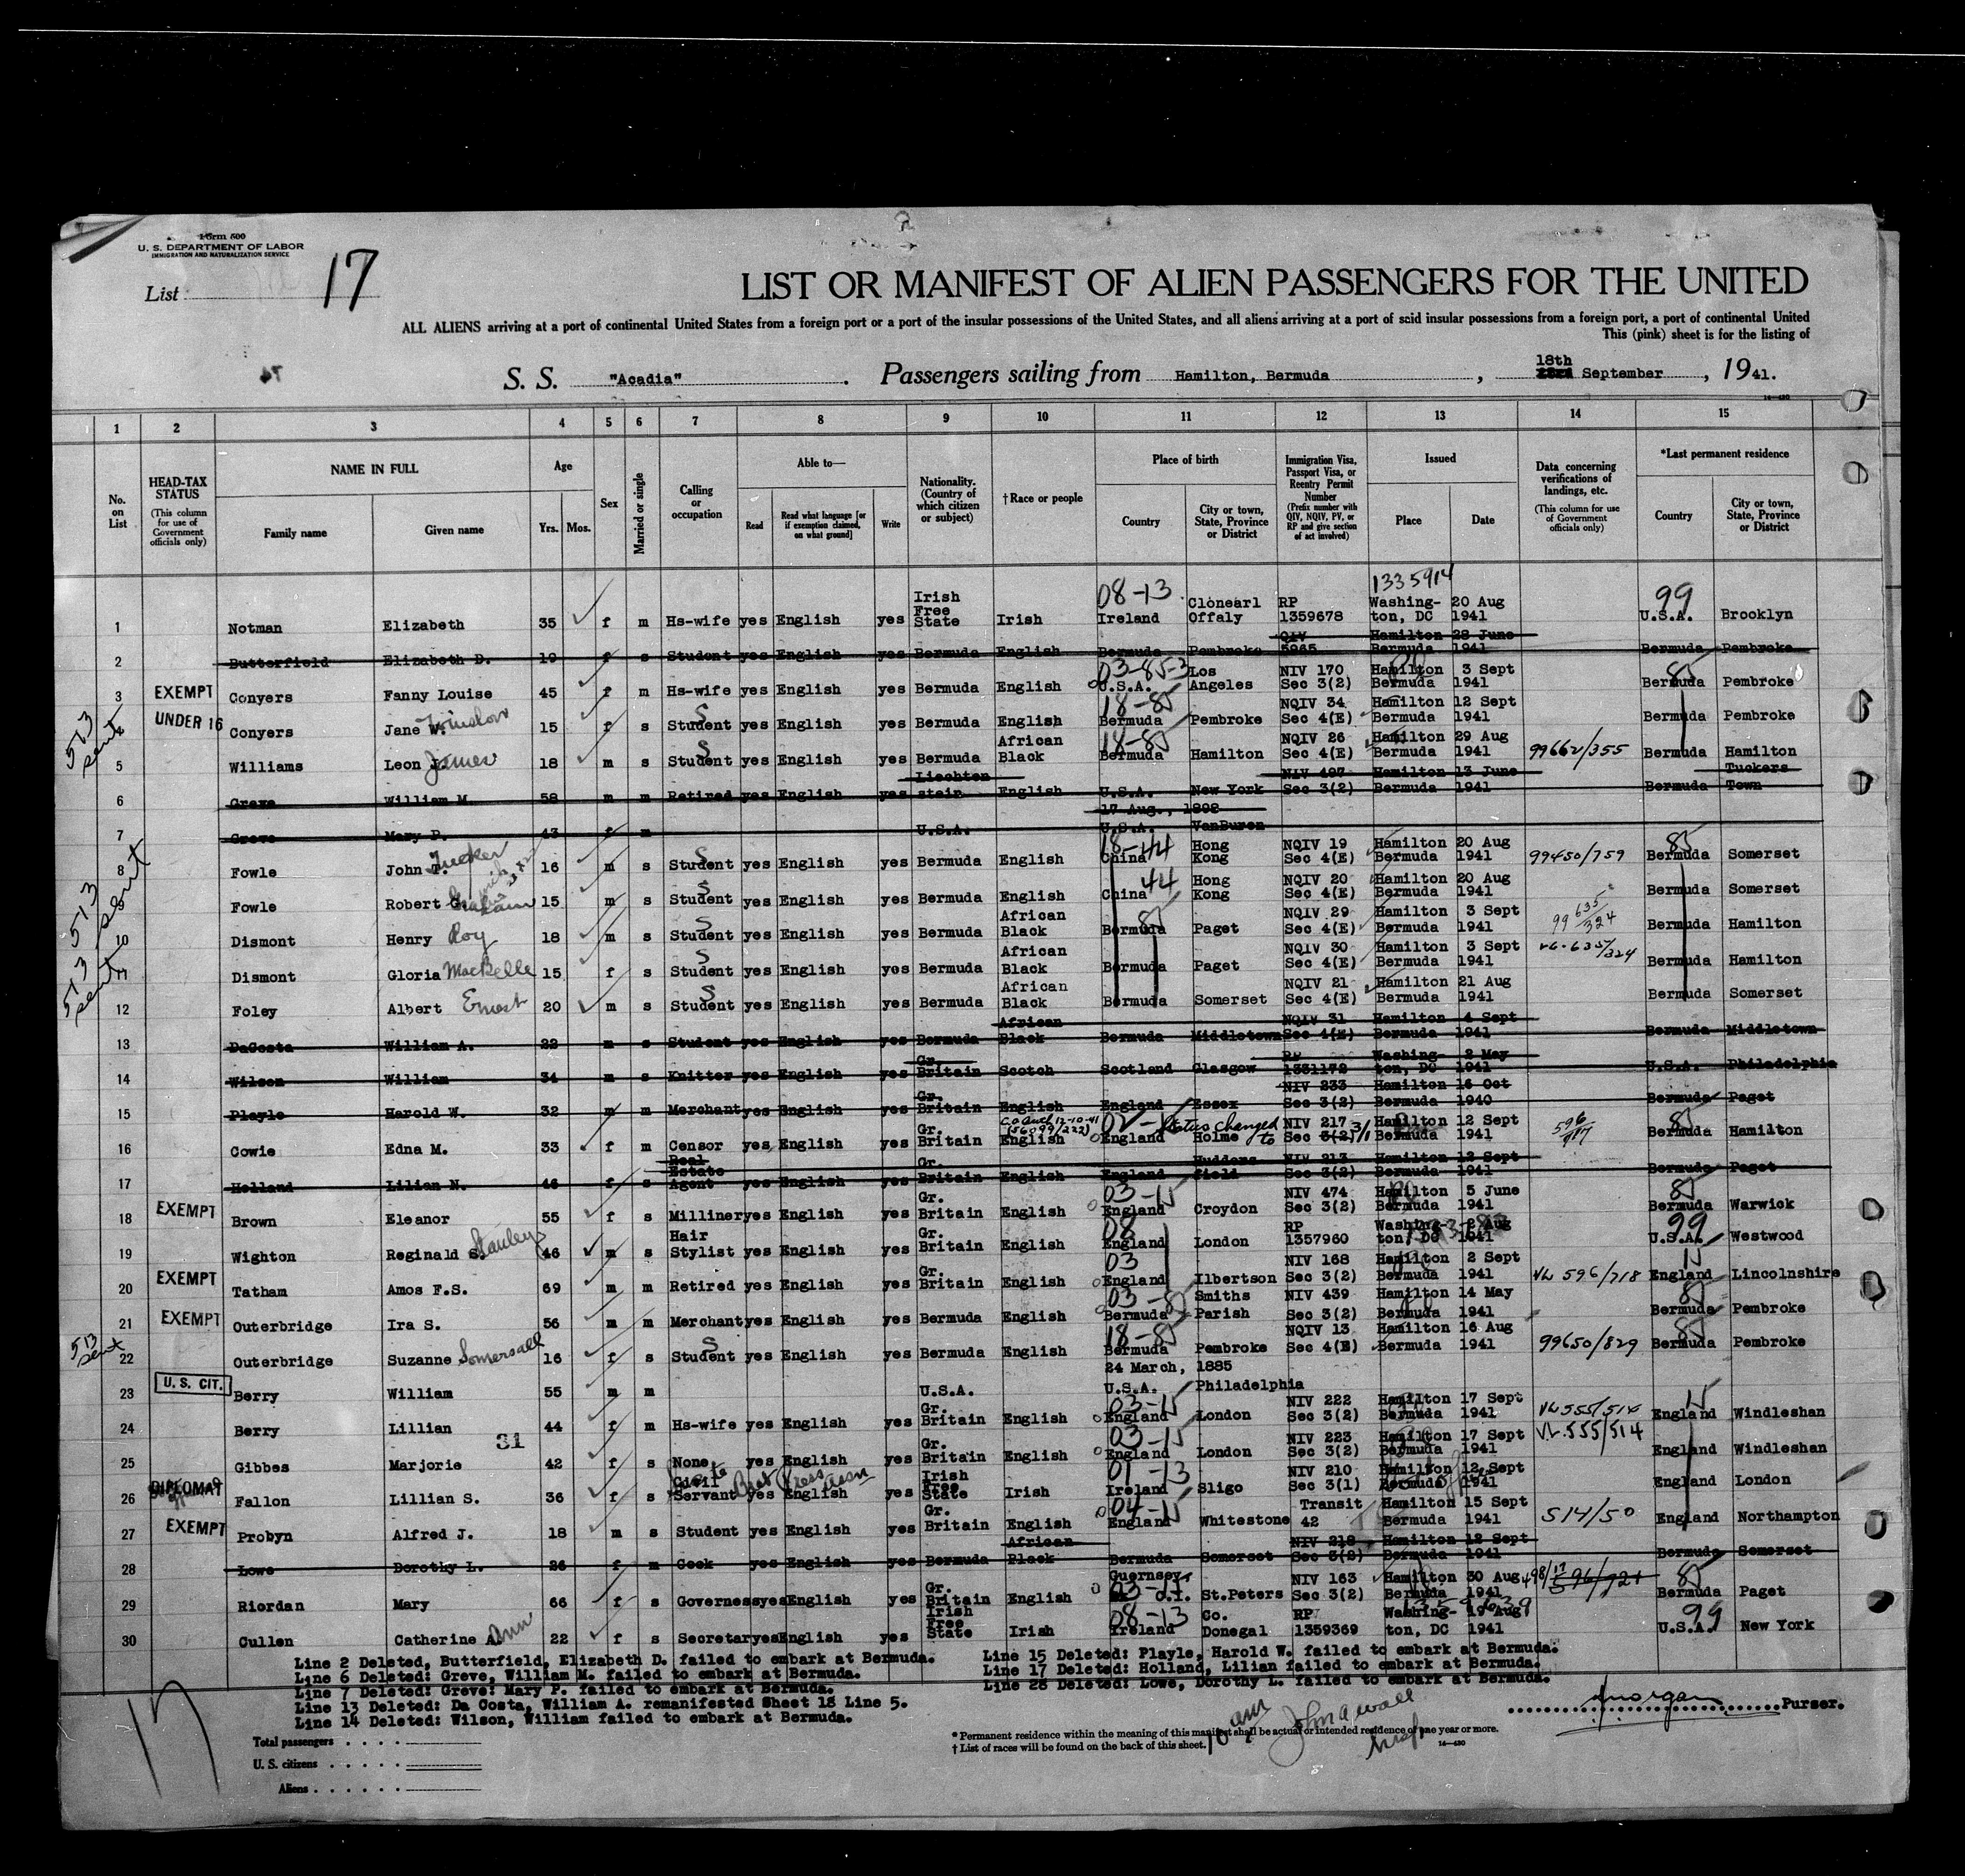 Form 500
U. S. DEPARTMENT OF LABOR
IMMIGRATION AND NATURALIZATION SERVICE
List 17
LIST OR MANIFEST OF ALIEN PASSENGERS FOR THE UNITED
ALL ALIENS arriving at a port of continental United States from a foreign port or a port of the insular possessions of the United States, and all aliens arriving at a port of said insular possessions from a foreign port, a port of continental United
This (pink) sheet is for the listing of
S. S. "Acadia" . Passengers sailing from Hamilton, Bermuda , 18th September , 1941.
16—490
1 2 3 4 5 6 7 8 9 10 11 12 13 14 15
No. on List
HEAD-TAX STATUS (This column for use of Government officials only)
NAME IN FULL Family name Given name
Age Yrs. Mos.
Sex
Married or single
Calling or occupation
Able to— Read Read what language [or if exemption claimed, on what ground] Write
Nationality. (Country of which citizen or subject)
†Race or people
Place of birth Country City or town, State, Province or District
Immigration Visa, Passport Visa, or Reentry Permit Number (Prefix number with QIV, NQIV, PV, or RP and give section of act involved)
Issued Place Date
Data concerning verifications of landings, etc. (This column for use of Government officials only)
*Last permanent residence Country City or town, State, Province or District
1 Notman Elizabeth 35 f m Hs-wife yes English yes Irish Free State Irish 08-13 Ireland Clonearl Offaly RP 1359678 1335914 Washington, DC 20 Aug 1941 99 U.S.A. Brooklyn
2 Butterfield Elizabeth D. 19 f s Student yes English yes Bermuda English Bermuda Pembroke QIV 5965 Hamilton Bermuda 28 June 1941 Bermuda Pembroke
3 EXEMPT Conyers Fanny Louise 45 f m Hs-wife yes English yes Bermuda English 03-85-3 U.S.A. Los Angeles NIV 170 Sec 3(2) Hamilton Bermuda 3 Sept 1941 85 Bermuda Pembroke
513 sent UNDER 16 Conyers Jane W. Winslow 15 f s Student S yes English yes Bermuda English 18-85 Bermuda Pembroke NQIV 34 Sec 4(E) Hamilton Bermuda 12 Sept 1941 Bermuda Pembroke
5 Williams Leon J. James 18 m s Student S yes English yes Bermuda African Black 18-85 Bermuda Hamilton NQIV 26 Sec 4(E) Hamilton Bermuda 29 Aug 1941 99662/355 Bermuda Hamilton
6 Greve William M. 58 m m Retired yes English yes Liechtenstein English U.S.A. New York NIV 497 Sec 3(2) Hamilton Bermuda 13 June 1941 Bermuda Tuckers Town
7 Greve Mary P. 43 f m U.S.A. 17 Aug., 1898 U.S.A. VanBuren
8 Fowle John T. Tucker 16 m s Student S yes English yes Bermuda English 18-44 China Hong Kong NQIV 19 Sec 4(E) Hamilton Bermuda 20 Aug 1941 99450/759 85 Bermuda Somerset
513 sent Fowle Robert G. Graham 15 m s Student S yes English yes Bermuda English 44 China Hong Kong NQIV 20 Sec 4(E) Hamilton Bermuda 20 Aug 1941 Bermuda Somerset
10 Dismont Henry Roy 18 m s Student S yes English yes Bermuda African Black 85 Bermuda Paget NQIV 29 Sec 4(E) Hamilton Bermuda 3 Sept 1941 99 635/324 Bermuda Hamilton
513 sent 11 Dismont Gloria MacBelle 15 f s Student S yes English yes Bermuda African Black Bermuda Paget NQIV 30 Sec 4(E) Hamilton Bermuda 3 Sept 1941 635/324 Bermuda Hamilton
12 Foley Albert Ernest 20 m s Student S yes English yes Bermuda African Black Bermuda Somerset NQIV 21 Sec 4(E) Hamilton Bermuda 21 Aug 1941 Bermuda Somerset
13 DaCosta William A. 22 m s Student yes English yes Bermuda African Black Bermuda Middletown NQIV 31 Sec 4(E) Hamilton Bermuda 4 Sept 1941 Bermuda Middletown
14 Wilson William 34 m s Knitter yes English yes Gr. Britain Scotch Scotland Glasgow RP 1331172 Washington, DC 2 May 1941 U.S.A. Philadelphia
15 Playle Harold W. 32 m m Merchant yes English yes Gr. Britain English England Essex NIV 233 Sec 3(2) Hamilton Bermuda 16 Oct 1940 Bermuda Paget
16 Cowie Edna M. 33 f m Censor yes English yes Gr. Britain English (56099/222) England Holme Status changed to NIV 217 Sec 3(2) 3/1 Hamilton Bermuda 12 Sept 1941 85 Bermuda Hamilton
17 Holland Lilian N. 46 f s Real Estate Agent yes English yes Gr. Britain English England Huddersfield NIV 213 Sec 3(2) Hamilton Bermuda 12 Sept 1941 Bermuda Paget
18 EXEMPT Brown Eleanor 55 f s Milliner yes English yes Gr. Britain English 03-15 England Croydon NIV 474 Sec 3(2) Hamilton Bermuda 5 June 1941 85 Bermuda Warwick
19 Wighton Reginald S. Stanley 46 m s Hair Stylist yes English yes Gr. Britain English 08 England London RP 1357960 Washington, DC 2 Aug 1941 99 U.S.A. Westwood
20 EXEMPT Tatham Amos F.S. 69 m m Retired yes English yes Gr. Britain English 03 England Ilbertson NIV 168 Sec 3(2) Hamilton Bermuda 2 Sept 1941 VL 596/718 15 England Lincolnshire
21 EXEMPT Outerbridge Ira S. 56 m m Merchant yes English yes Bermuda English 03-85 Bermuda Smiths Parish NIV 439 Sec 3(2) Hamilton Bermuda 14 May 1941 85 Bermuda Pembroke
513 sent 22 Outerbridge Suzanne Somersall 16 f s Student S yes English yes Bermuda English 18-85 Bermuda Pembroke NQIV 13 Sec 4(E) Hamilton Bermuda 16 Aug 1941 99650/829 85 Bermuda Pembroke
23 U. S. CIT. Berry William 55 m m U.S.A. 24 March, 1885 U.S.A. Philadelphia
24 Berry Lillian 44 f m Hs-wife yes English yes Gr. Britain English 03-15 England London NIV 222 Sec 3(2) Hamilton Bermuda 17 Sept 1941 VL 555/514 15 England Windleshan
31
25 Gibbes Marjorie 42 f s None yes English yes Gr. Britain English 03-15 England London NIV 223 Sec 3(2) Hamilton Bermuda 17 Sept 1941 VL 555/514 England Windleshan
26 DIPLOMAT Fallon Lillian S. 36 f s Civil Servant yes English yes Irish Free State Irish 01-13 Ireland Sligo NIV 210 Sec 3(1) Hamilton Bermuda 12 Sept 1941 England London
27 EXEMPT Probyn Alfred J. 18 m s Student yes English yes Gr. Britain English 04-15 England Whitestone Transit 42 Hamilton Bermuda 15 Sept 1941 514/50 England Northampton
28 Lowe Dorothy L. 26 f m Cook yes English yes Bermuda African Black Bermuda Somerset NIV 218 Sec 3(2) Hamilton Bermuda 12 Sept 1941 Bermuda Somerset
29 Riordan Mary 66 f s Governess yes English yes Gr. Britain English Guernsey C.I. St.Peters NIV 163 Sec 3(2) Hamilton Bermuda 30 Aug 1941 85 Bermuda Paget
30 Cullen Catherine A. Ann 22 f s Secretary yes English yes Irish Free State Irish 08-13 Ireland Co. Donegal RP 1359369 Washington, DC 19 Aug 1941 99 U.S.A. New York
Line 2 Deleted, Butterfield, Elizabeth D. failed to embark at Bermuda.
Line 6 Deleted: Greve, William M. failed to embark at Bermuda.
Line 7 Deleted: Greve: Mary P. failed to embark at Bermuda.
Line 13 Deleted: Da Costa, William A. remanifested Sheet 18 Line 5.
Line 14 Deleted: Wilson, William failed to embark at Bermuda.
Line 15 Deleted: Playle, Harold W. failed to embark at Bermuda.
Line 17 Deleted: Holland, Lilian failed to embark at Bermuda.
Line 28 Deleted: Lowe, Dorothy L. failed to embark at Bermuda.
Morgan Purser.
17
Total passengers
U. S. citizens
Aliens
* Permanent residence within the meaning of this manifest shall be actual or intended residence of one year or more.
† List of races will be found on the back of this sheet.
16—490